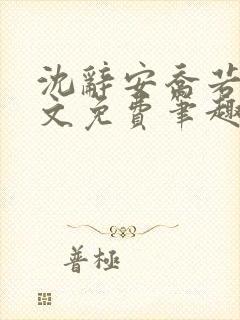 沈辭安喬若
文免費筆趣
普極